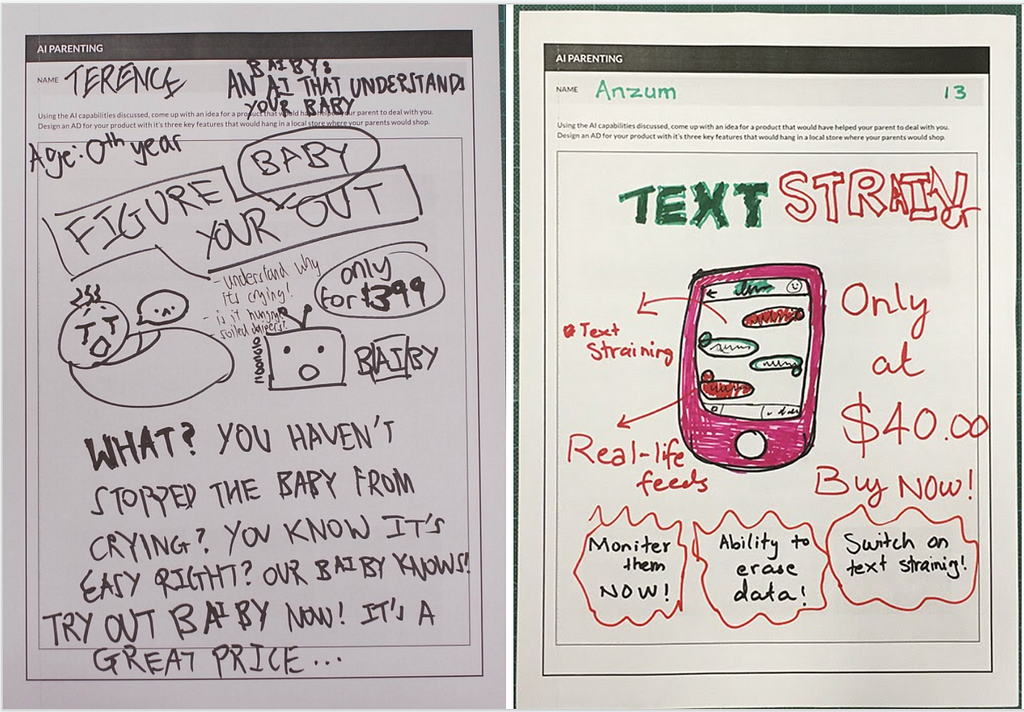 AI PARENTING
NAME TERENCE
BAIBY:
AN AI THAT UNDERSTANDS
YOUR BABY
Using the AI capabilities discussed, come up with an idea for a product that would have helped your parent to deal with you.
Design an AD for your product with it's three key features that would hang in a local store where your parents would shop.
Age: 0th year
FIGURE BABY
YOUR OUT
- understand why
its crying!
- is it hungry?
soiled
only
for $399
BAIBY
WHAT? YOU HAVEN'T
STOPPED THE BABY FROM
CRYING? YOU KNOW IT'S
EASY RIGHT? OUR BAIBY KNOWS!
TRY OUT BAIBY NOW! IT'S A
GREAT PRICE...
AI PARENTING
NAME Anzum 13
Using the AI capabilities discussed, come up with an idea for a product that would have helped your parent to deal with you.
Design an AD for your product with it's three key features that would hang in a local store where your parents would shop.
TEXT STRAINer
Text
Straining
Real-life
feeds
Only
at
$40.00
Buy NOW!
Moniter
them
NOW!
Ability to
erase
data!
Switch on
text strainig!